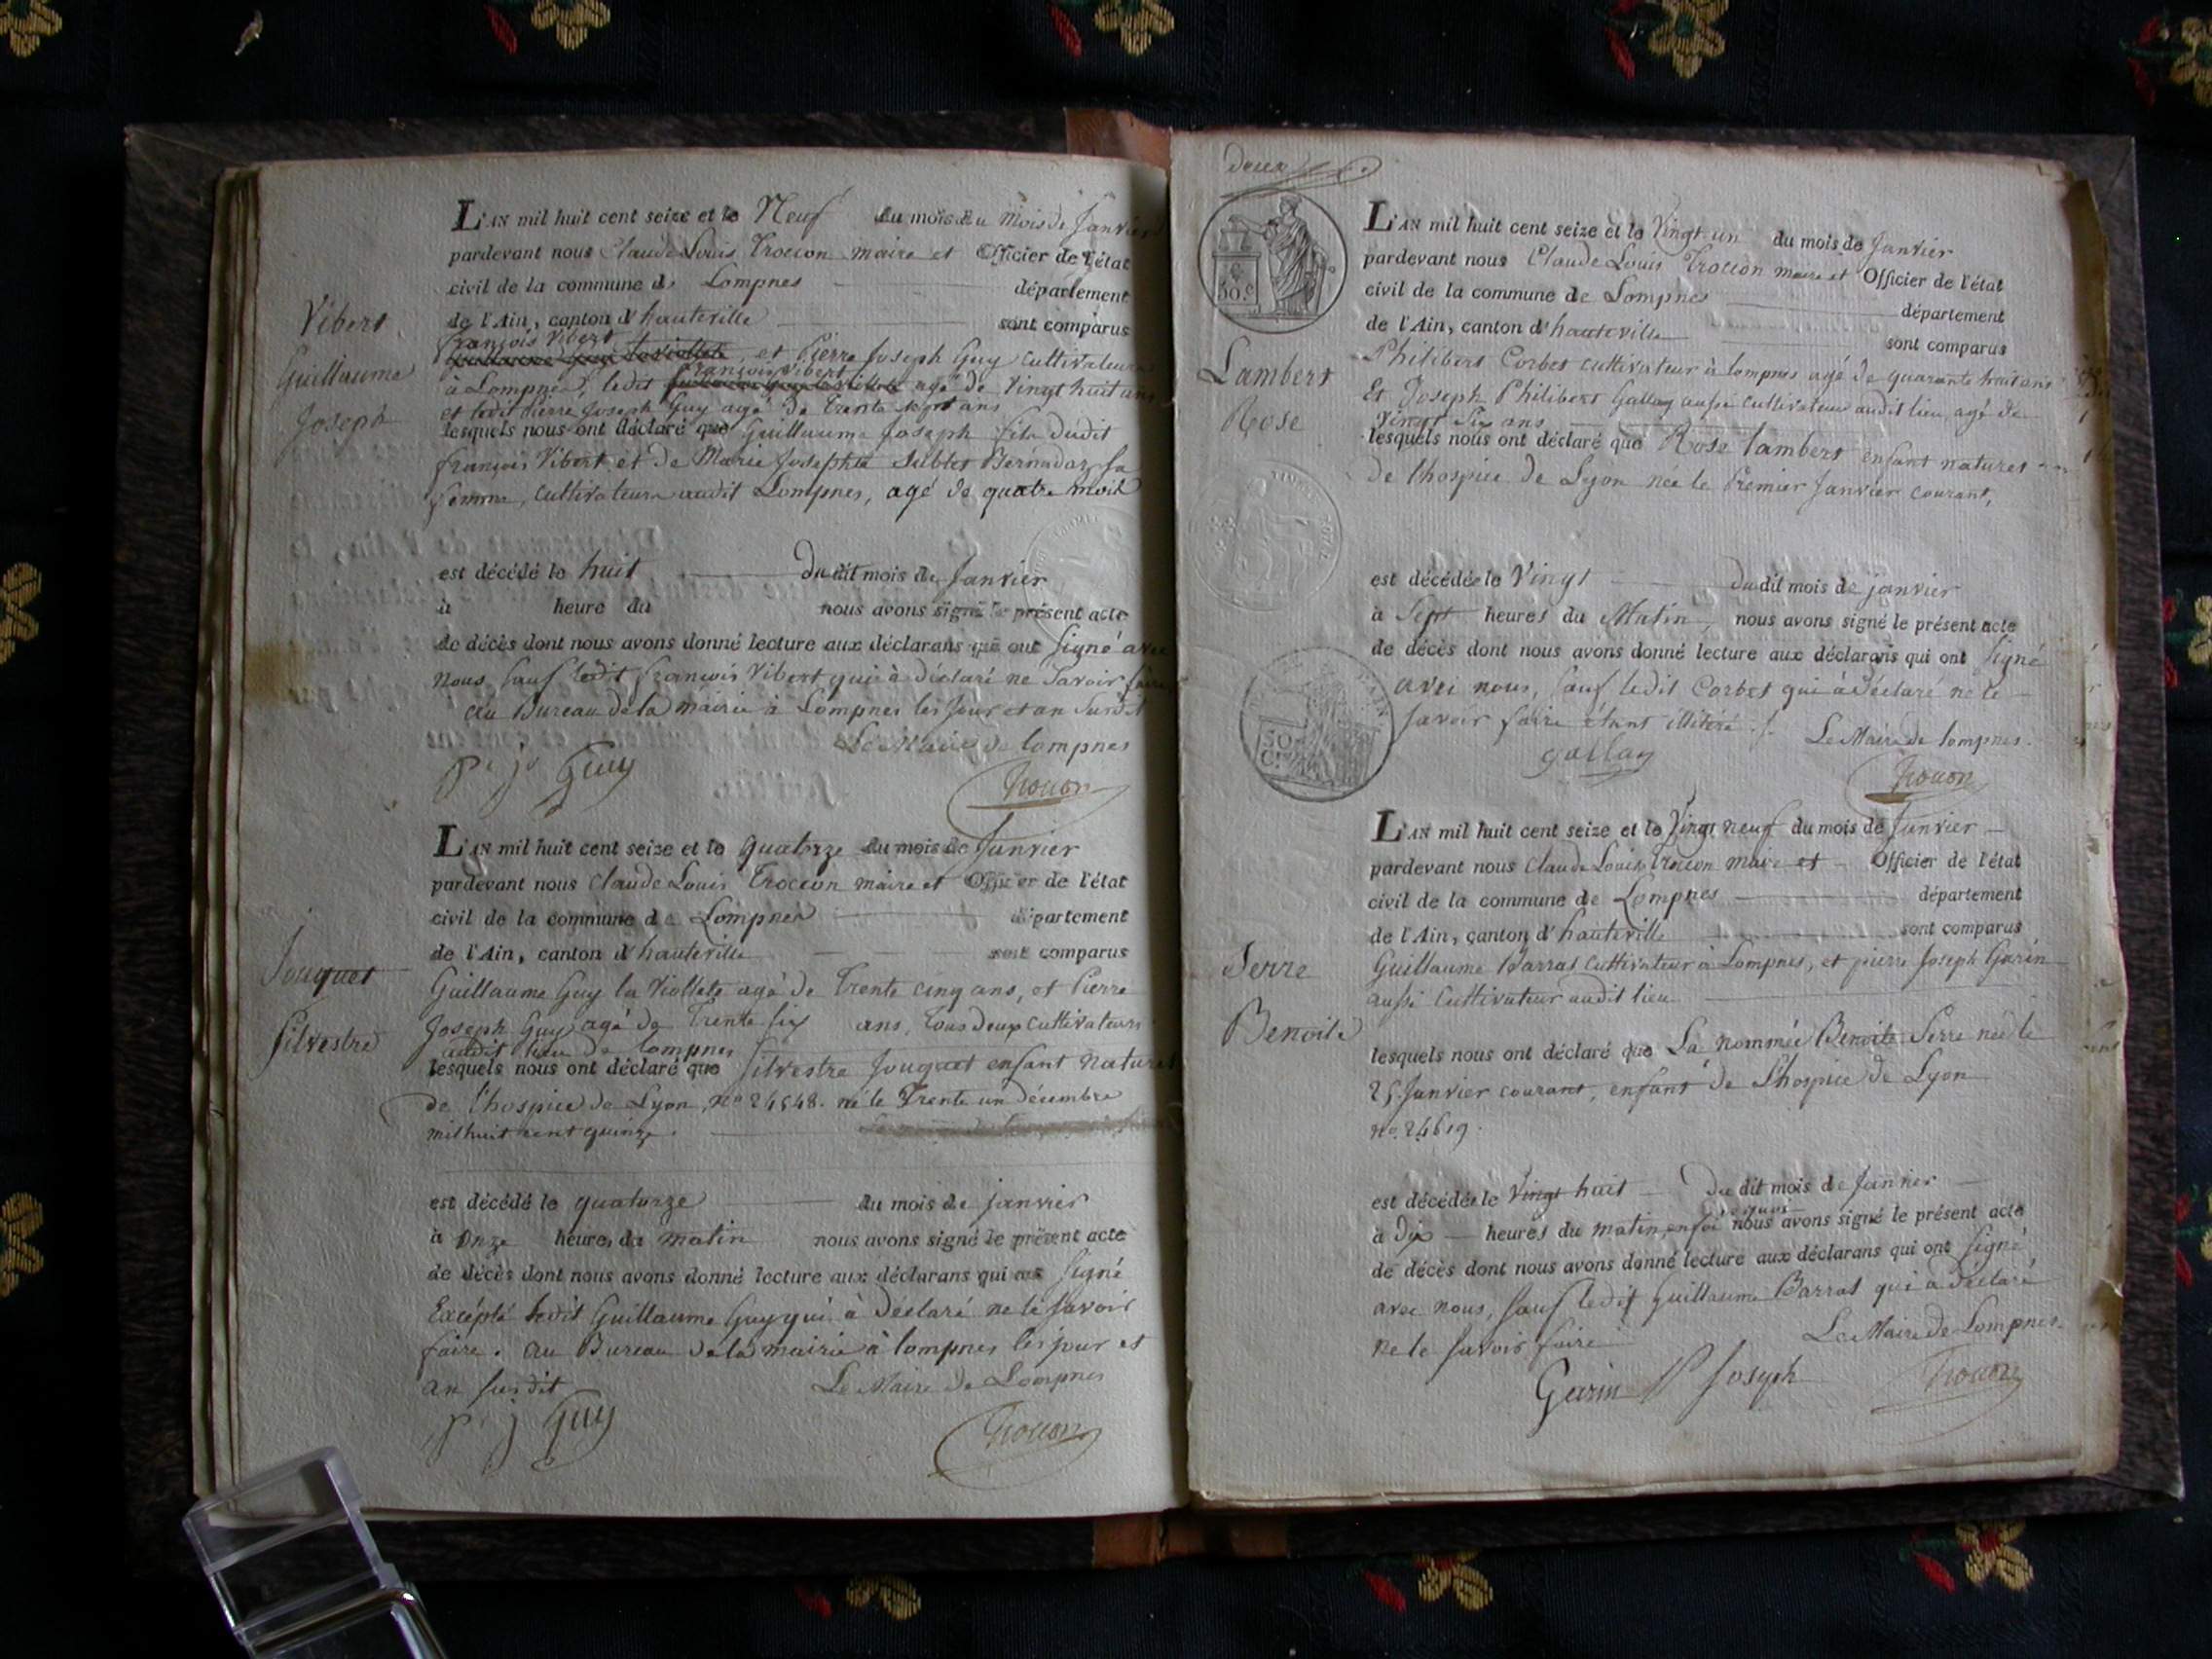 L'AN mil huit cent seize et le Neuf du mois du Mois de Janvier
pardevant nous Claude Louis Troccon maire et Officier de l'état
civil de la commune de Lompnes département
de l'Ain, canton d'hauteville sont comparus
françois Vibert
et Pierre Joseph Guy Cultivateurs
françois Vibert
à Lompnes, ledit agé de Vingt huit ans
et ledit Pierre Joseph Guy agé de Trente sept ans
lesquels nous ont déclaré que Guillaume Joseph fils dudit
françois Vibert et de Marie Josephte Sublet Bernadaz sa
femme, Cultivateurs audit Lompnes, agé de quatre mois
est décédé le huit Dudit mois de Janvier
à heure du nous avons signé le présent acte
de décès dont nous avons donné lecture aux déclarans qui ont Signé avec
Nous, Sauf ledit françois Vibert qui à déclaré ne Savoir faire
au Bureau de la mairie à Lompnes les Jour et an Susdit
Le Maire de Lompnes
p. j. Guy
Troccon
Vibert
Guillaume
Joseph
L'AN mil huit cent seize et le Quatorze du mois de Janvier
pardevant nous Claude Louis Troccon maire et Officier de l'état
civil de la commune de Lompnes département
de l'Ain, canton d'hauteville sont comparus
Guillaume Guy la Viollete agé de Trente cinq ans, et Pierre
Joseph Guy agé de Trente six ans, Tous deux Cultivateurs
audit lieu de lompnes
lesquels nous ont déclaré que Silvestre Jouquet enfant naturel
de l'hospice de Lyon, n° 24548. né le Trente un décembre
mil huit cent quinze.
est décédé le quatorze du mois de janvier
à Onze heures du matin nous avons signé le présent acte
de décès dont nous avons donné lecture aux déclarans qui ont Signé
Excepté ledit Guillaume Guy qui à déclaré ne le savoir
faire. au Bureau de la mairie à lompnes les jour et
an susdit
Le Maire de Lompnes
p. j Guy
Troccon
Jouquet
Silvestre
deux
30.c
L'AN mil huit cent seize et le Vingt un du mois de Janvier
pardevant nous Claude Louis Troccon maire et Officier de l'état
civil de la commune de Lompnes département
de l'Ain, canton d'hauteville sont comparus
Philibert Corbet cultivateur à lompnes agé de quarante huit ans
Et Joseph Philibert Gallay aussi cultivateur audit lieu, agé de
Vingt Six ans
lesquels nous ont déclaré que Rose lambert enfant naturel
de l'hospice de Lyon née le Premier Janvier courant,
est décédée le Vingt dudit mois de janvier
à Sept heures du Matin, nous avons signé le présent acte
de décès dont nous avons donné lecture aux déclarans qui ont Signé
avec nous, Sauf ledit Corbet qui à déclaré ne le
savoir faire étant illitéré.
Le Maire de lompnes.
Gallay
Troccon
Lambert
Rose
50
C.
L'AN mil huit cent seize et le Vingt neuf du mois de Janvier
pardevant nous Claude Louis Troccon maire et Officier de l'état
civil de la commune de Lompnes département
de l'Ain, canton d'hauteville sont comparus
Guillaume Barral Cultivateur à Lompnes, et pierre Joseph Garin
aussi Cultivateur audit lieu
lesquels nous ont déclaré que La nommée Benoite Serre née le
25 Janvier courant, enfant de l'hospice de Lyon
n° 24619.
est décédée le Vingt huit Du dit mois de Janvier
à Dix heures du matin, en foi nous avons signé le présent acte
de décès dont nous avons donné lecture aux déclarans qui ont Signé
avec nous, Sauf ledit Guillaume Barral qui a déclaré
ne le savoir faire
Le Maire de Lompnes.
Garin P Joseph
Troccon
Serre
Benoite